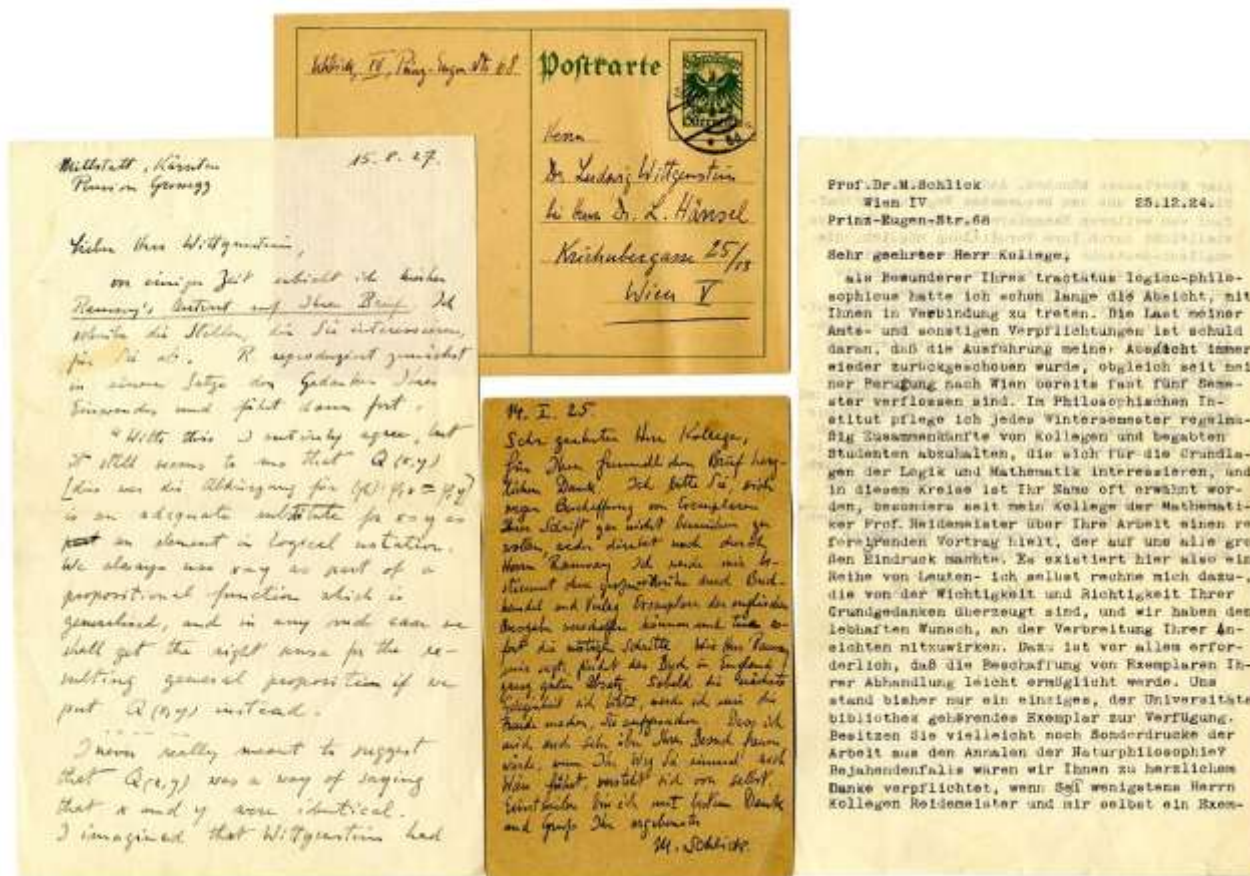 Schlick, IV, Prinz-Eugen-Str. 68
Postkarte
Herrn
Dr. Ludwig Wittgenstein
bei Herrn Dr. L. Hänsel
Kriehubergasse 25/
Wien V
Millstatt, Kärnten
15. 8. 27.
Pension
Lieber Herr Wittgenstein,
vor einiger Zeit erhielt ich
Ramsey's Antwort auf Ihren Brief. Ich
schreibe die Stellen, die Sie interessieren,
für Sie ab. R. reproduziert zunächst
in einem Satze den Gedanken Ihres
Einwandes und fährt dann fort:
"With this I entirely agree, but
it still seems to me that Q(x,y)
[dies war die Abkürzung für
is an adequate substitute for x=y as
an element in logical notation.
We always use x=y as part of a
propositional function which is
generalised, and in any such case we
shall get the right sense for the re-
sulting general proposition if we
put Q(x,y) instead.
I never really meant to suggest
that Q(x,y) was a way of saying
that x and y were identical.
I imagined that Wittgenstein had
14. I. 25.
Sehr geehrter Herr Kollege,
für Ihren freundlichen Brief herz-
lichen Dank. Ich bitte Sie, sich
wegen Beschaffung von Exemplaren
Ihrer Schrift gar nicht bemühen zu
wollen, weder direkt noch durch
Herrn Ramsey. Ich werde mir be-
stimmt durch Buch-
handel und Verlag Exemplare der englischen
Ausgabe verschaffen können und tue so-
fort die nötigen Schritte. Wie Herr Ramsey
mir sagt, findet das Buch in England
ganz guten Absatz. Sobald die nächste
werde ich mir die
Freude machen, Sie aufzusuchen. Dass ich
mich auch sehr über Ihren Besuch freuen
würde, wenn Ihr Weg Sie einmal nach
Wien führt, versteht sich von selbst.
Einstweilen bin ich mit bestem Danke
und Gruß Ihr ergebenster
M. Schlick.
Prof.Dr.M.Schlick
Wien IV 25.12.24.
Prinz-Eugen-Str.68
Sehr geehrter Herr Kollege,
als Bewunderer Ihres tractatus logico-philo-
sophicus hatte ich schon lange die Absicht, mit
Ihnen in Verbindung zu treten. Die Last meiner
Amts- und sonstigen Verpflichtungen ist schuld
daran, daß die Ausführung meiner Absicht immer
wieder zurückgeschoben wurde, obgleich seit mei
ner Berufung nach Wien bereits fast fünf Seme-
ster verflossen sind. Im Philosophischen In-
stitut pflege ich jedes Wintersemester regelmä-
ßig Zusammenkünfte von Kollegen und begabten
Studenten abzuhalten, die sich für die Grundla-
gen der Logik und Mathematik interessieren, und
in diesem Kreise ist Ihr Name oft erwähnt wor-
den, besonders seit mein Kollege der Mathemati-
ker Prof. Reidemeister über Ihre Arbeit einen re
ferierenden Vortrag hielt, der auf uns alle gro
ßen Eindruck machte. Es existiert hier also ein
Reihe von Leuten- ich selbst rechne mich dazu-,
die von der Wichtigkeit und Richtigkeit Ihrer
Grundgedanken überzeugt sind, und wir haben den
lebhaften Wunsch, an der Verbreitung Ihrer An-
sichten mitzuwirken. Dazu ist vor allem erfor-
derlich, daß die Beschaffung von Exemplaren Ih-
rer Abhandlung leicht ermöglicht werde. Uns
stand bisher nur ein einziges, der Universitäts
bibliothek gehörendes Exemplar zur Verfügung.
Besitzen Sie vielleicht noch Sonderdrucke der
Arbeit aus den Annalen der Naturphilosophie?
Bejahendenfalls wären wir Ihnen zu herzlichem
Danke verpflichtet, wenn Sei wenigstens Herrn
Kollegen Reidemeister und mir selbst ein Exem-